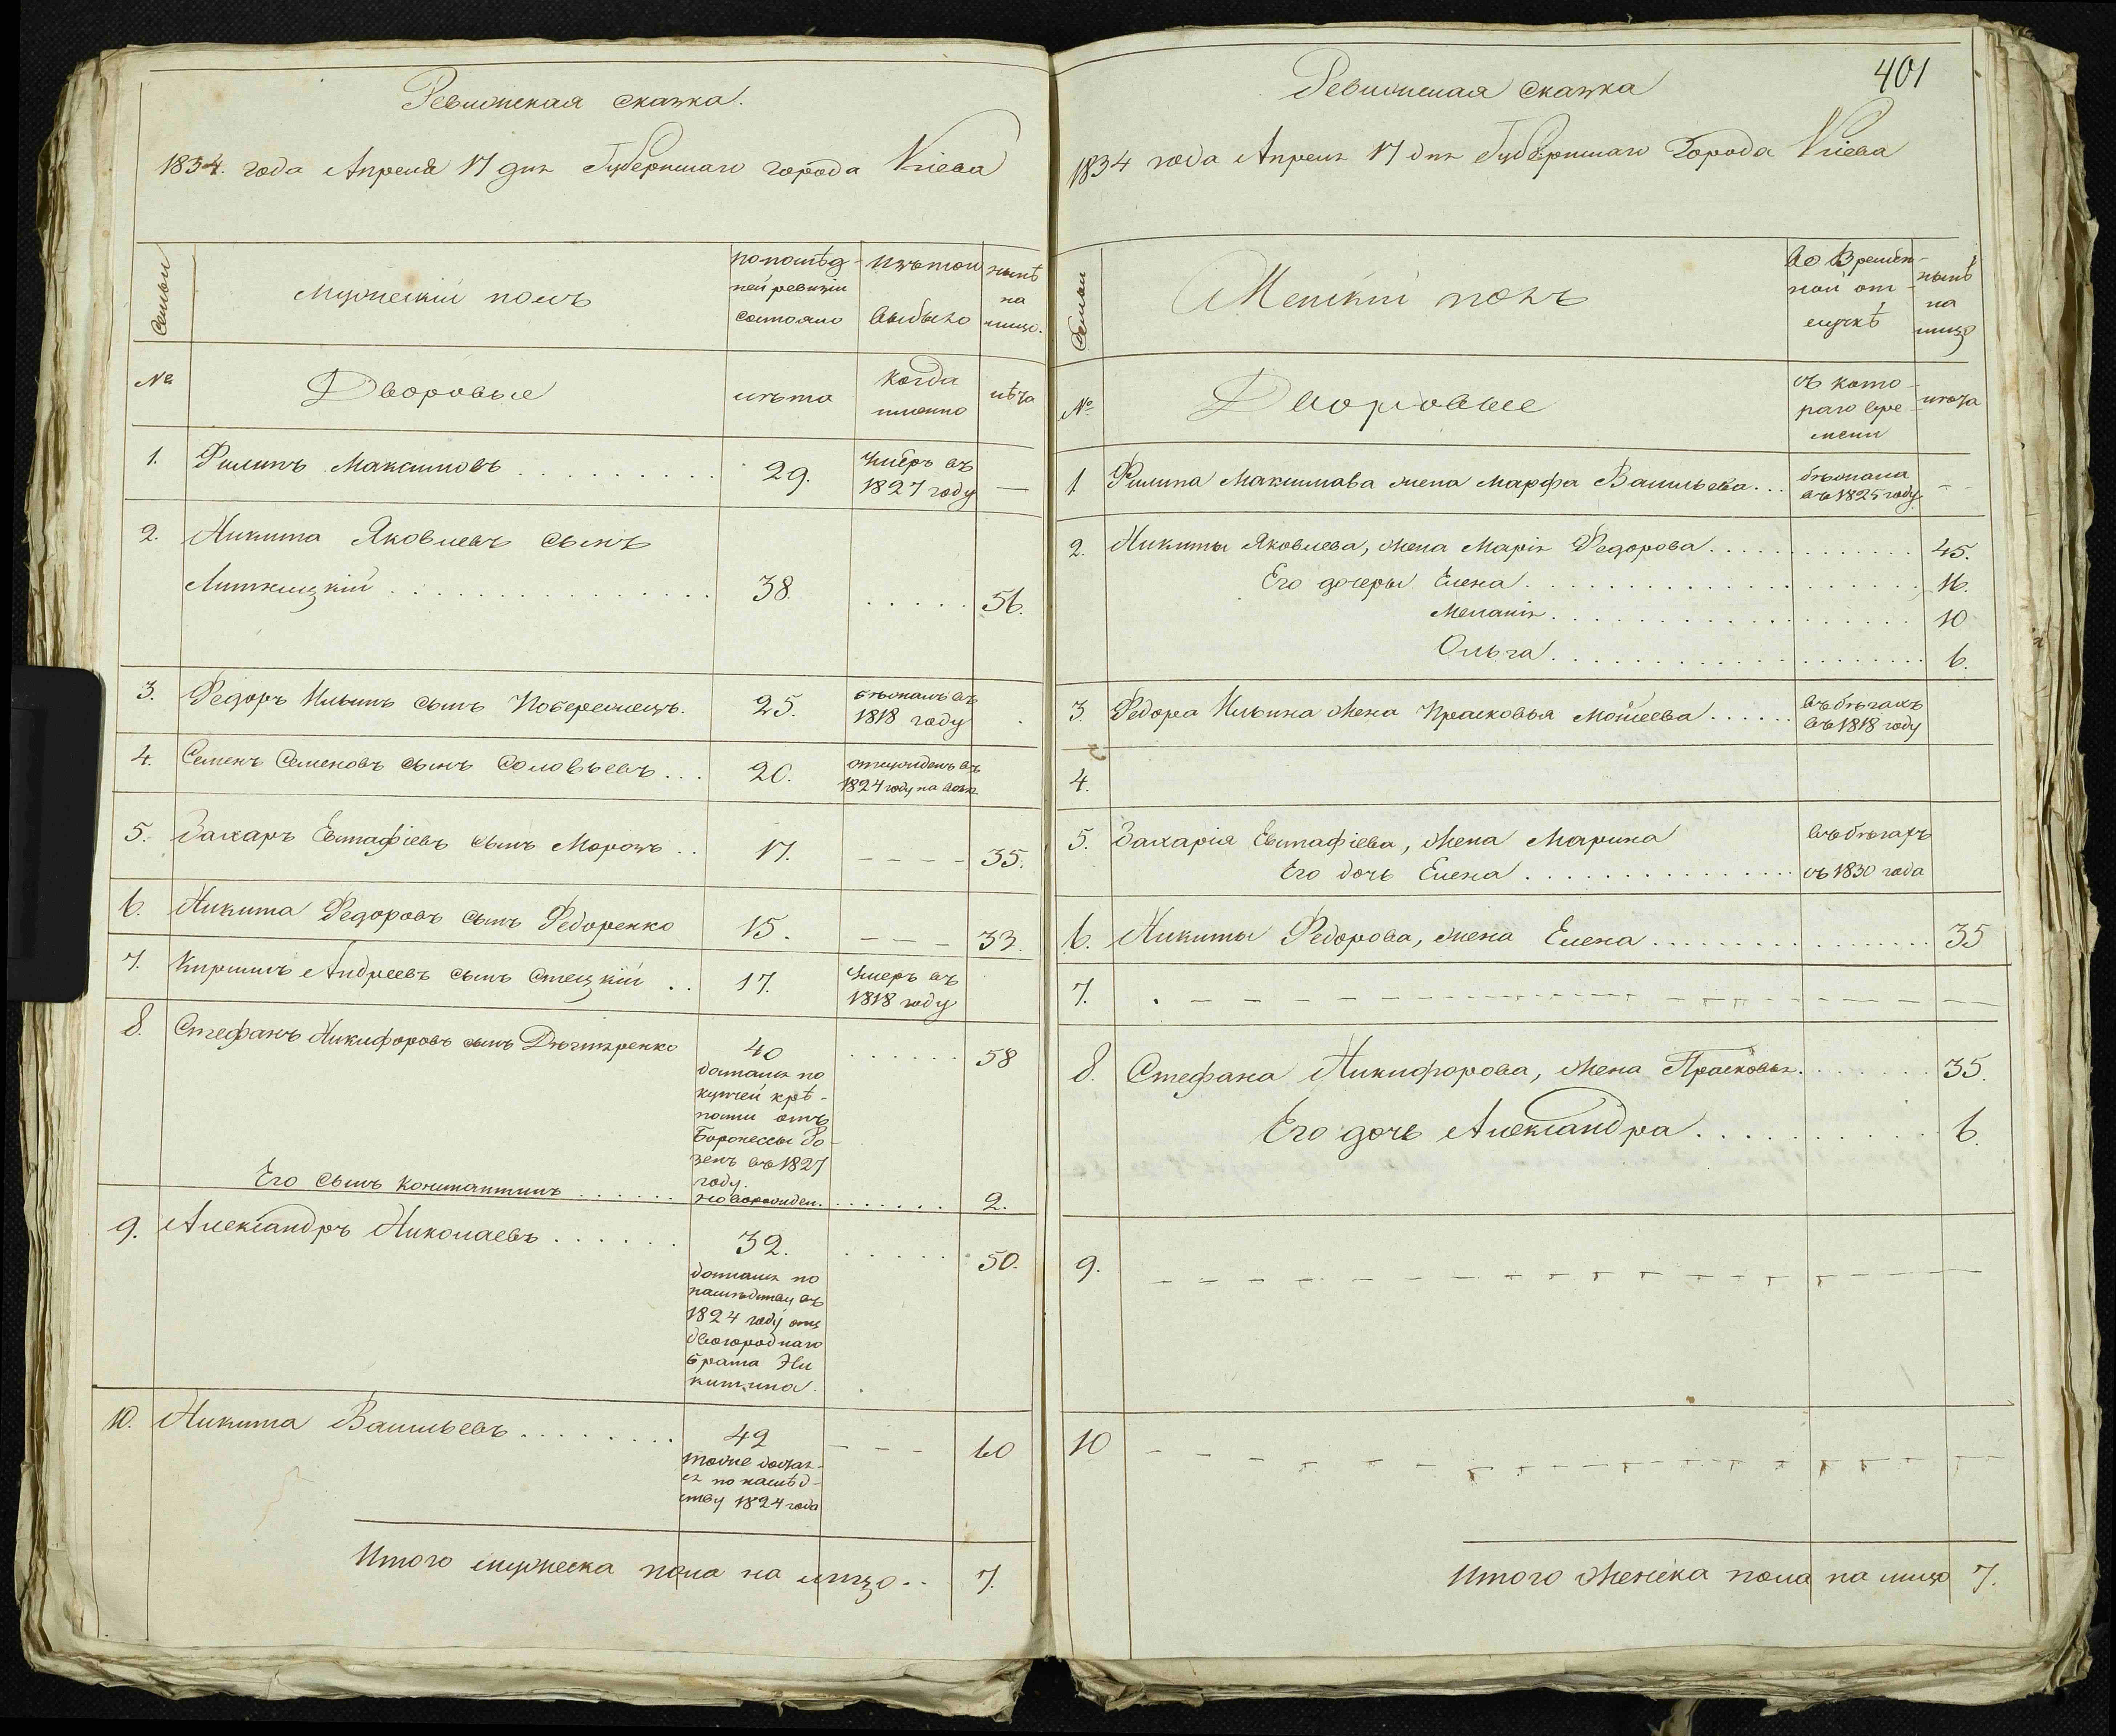 Ревижская сказка.
1834. года Апреля 17 дня Губернскаго города Кіева
Семьи
Мужескій полъ
по послѣд-
ней ревизіи
состояло
изъ того
выбыло
нынѣ
на
лицо.
№
Дворовые
лѣта
когда
именно
лѣта
1. Филипъ Максимовъ . . . . . . . . 29. умеръ въ
1827 году —
2. Никита Яковлевъ сынъ
38. . . . . . 56.
3. Федоръ Ильинъ сынъ Побережецъ. 25. бѣжалъ въ
1818 году
4. Семенъ Семеновъ сынъ Соловьевъ . . . 20. въ
1824 году на волю.
5. Захаръ Евстафіевъ сынъ Морозъ . . 17. - - - - 35.
6. Никита Федоровъ сынъ Федоренко 15. - - - 33.
7. Кирилъ Андреевъ сынъ Стецкій . . 17. умеръ въ
1818 году
8. Стефанъ Никифоровъ сынъ Дѣгтяренко 40 . . . . . . 58
достался по
купчей крѣ-
пости отъ
Баронессы Ро-
зенъ въ 1827
году.
Его сынъ Константинъ . . . . . . новорожден. . . . . . . . 2.
9. Александръ Николаевъ . . . . . . 32. . . . . . 50.
достался по
наслѣдству въ
1824 году отъ
двоюроднаго
брата Ни
китина.
10. Никита Васильевъ . . . . . . . . 42 - - - 60
тоже достал-
ся по наслѣд-
ству 1824 года
Итого мужеска пола на лицо . . 7.
401
Ревижская сказка
1834 года Апреля 17 дня Губернскаго Города Кіева
Семьи
Женскій полъ
Во времен-
ной от-
лучкѣ
нынѣ
на
лицо
№
Дворовые
съ кото-
раго вре-
мени
лѣта
1 Филипа Максимова жена Марфа Васильева . . . бѣжала
въ 1825 году - -
2. Никиты Яковлева, жена Марія Федорова . . . . . . . . . . . 45.
Его дочеры Елена . . . . . . . . . . . . . . . . . 16.
Меланія . . . . . . . . . . . . . . . . . 10
Ольга . . . . . . . . . . . . . . . . . 6.
3. Федора Ильина жена Прасковья Моисеева . . . . . . въ бѣгахъ
въ 1818 году
4.
5. Захарія Евстафіева, жена Марина въ бѣгахъ
Его дочь Елена . . . . . . . . . . . . . съ 1830 года
6. Никиты Федорова, жена Елена . . . . . . . . . . . . . . . 35
7. - - - - - - - - - - - - - - - -
8. Стефана Никифорова, жена Прасковья . . . . . . . . 35.
Его дочь Александра . . . . . . . . . . . 6.
9. - - - - - - - - - - - - - - - -
10 - - - - - - - - - - - - - - - -
Итого женска пола на лицо 7.